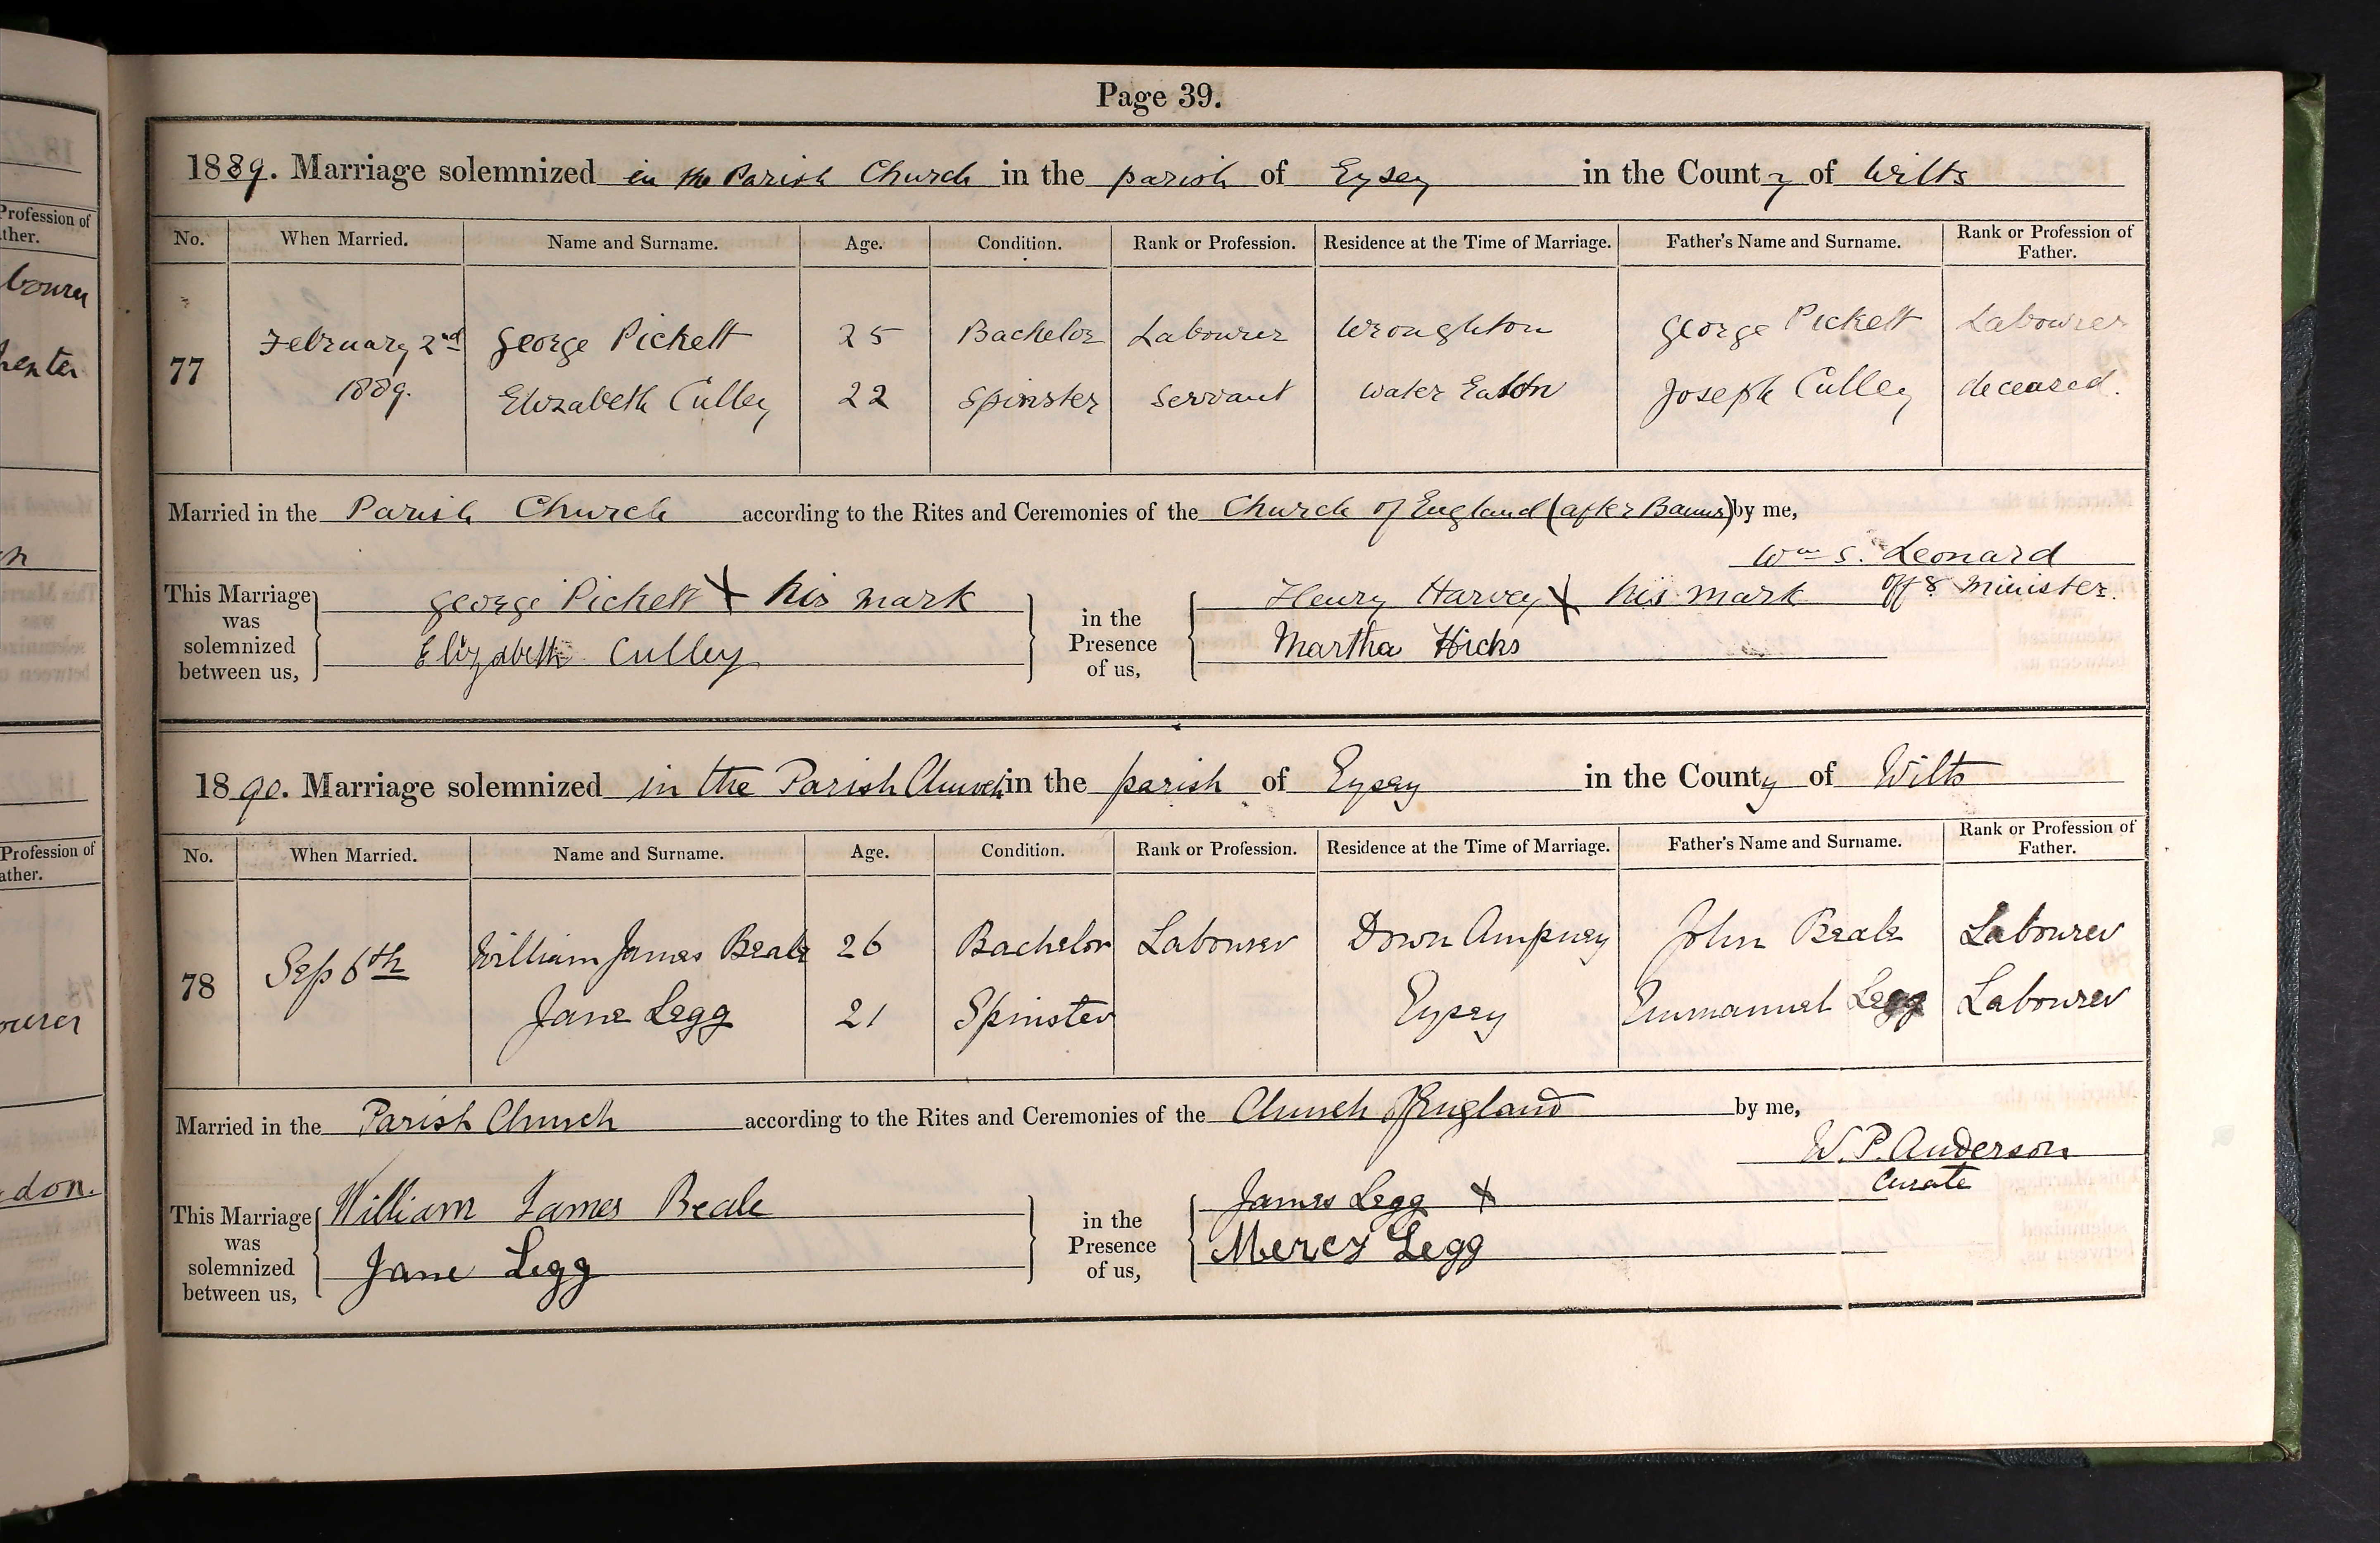 Page 39.
1889. Marriage solemnized in the Parish Church in the parish of Eysey in the County of Wilts
No. When Married. Name and Surname. Age. Condition. Rank or Profession. Residence at the Time of Marriage. Father's Name and Surname. Rank or Profession of Father.
77
February 2nd George Pickett 25 Bachelor Labourer Wroughton George Pickett Labourer
1889. Elizabeth Culley 22 Spinster Servant Water Eaton Joseph Culley deceased.
Married in the Parish Church according to the Rites and Ceremonies of the Church of England (after Banns) by me,
Wm S. Leonard
Offg Minister.
This Marriage was solemnized between us,
George Pickett X his mark
Elizabeth Culley
in the Presence of us,
Henry Harvey X his mark
Martha Hicks
1890. Marriage solemnized in the Parish Church in the parish of Eysey in the County of Wilts
No. When Married. Name and Surname. Age. Condition. Rank or Profession. Residence at the Time of Marriage. Father's Name and Surname. Rank or Profession of Father.
78
Sep 6th William James Beale 26 Bachelor Labourer Down Ampney John Beale Labourer
Jane Legg 21 Spinster Eysey Emmanuel Legg Labourer
Married in the Parish Church according to the Rites and Ceremonies of the Church of England by me,
W. P. Anderson
Curate
This Marriage was solemnized between us,
William James Beale
Jane Legg
in the Presence of us,
James Legg X
Mercy Legg
Profession of
ther.
Profession of
ather.
ourer
don.